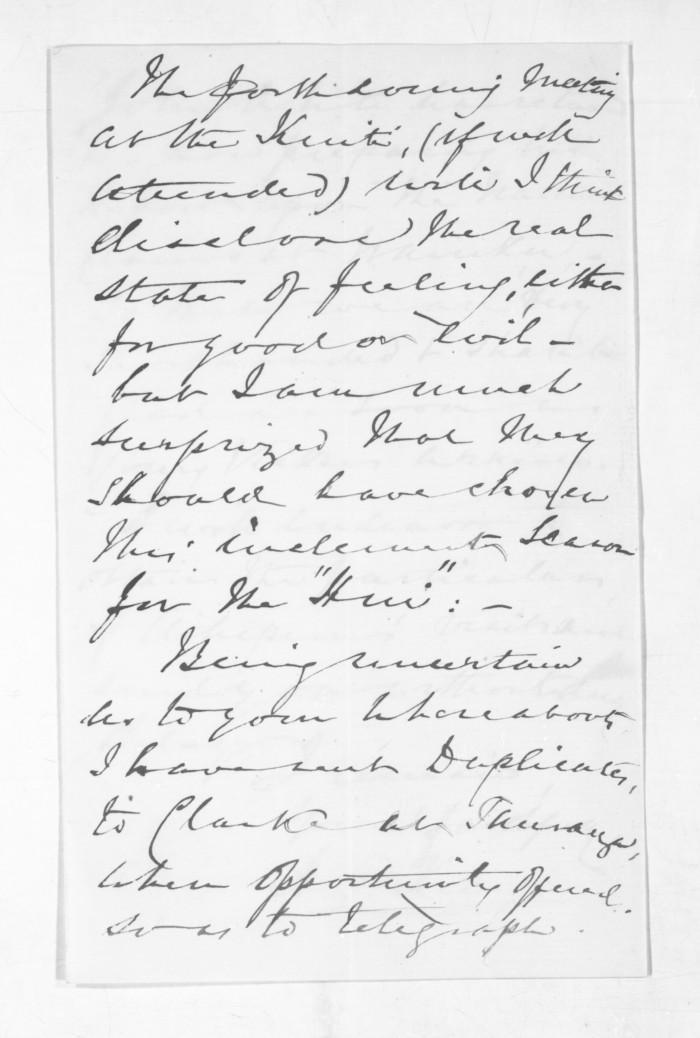 The forthcoming Meeting
at the Kuiti, (if well
attended) will I think
disclose the real
state of feeling, either
for good or evil –
but I am much
surprized that they
should have chosen
this inclement Season
for the "Hui": –
Being uncertain
as to your whereabouts
I have sent Duplicates,
to Clarke at Tauranga,
when opportunity offered.
so as to telegraph.